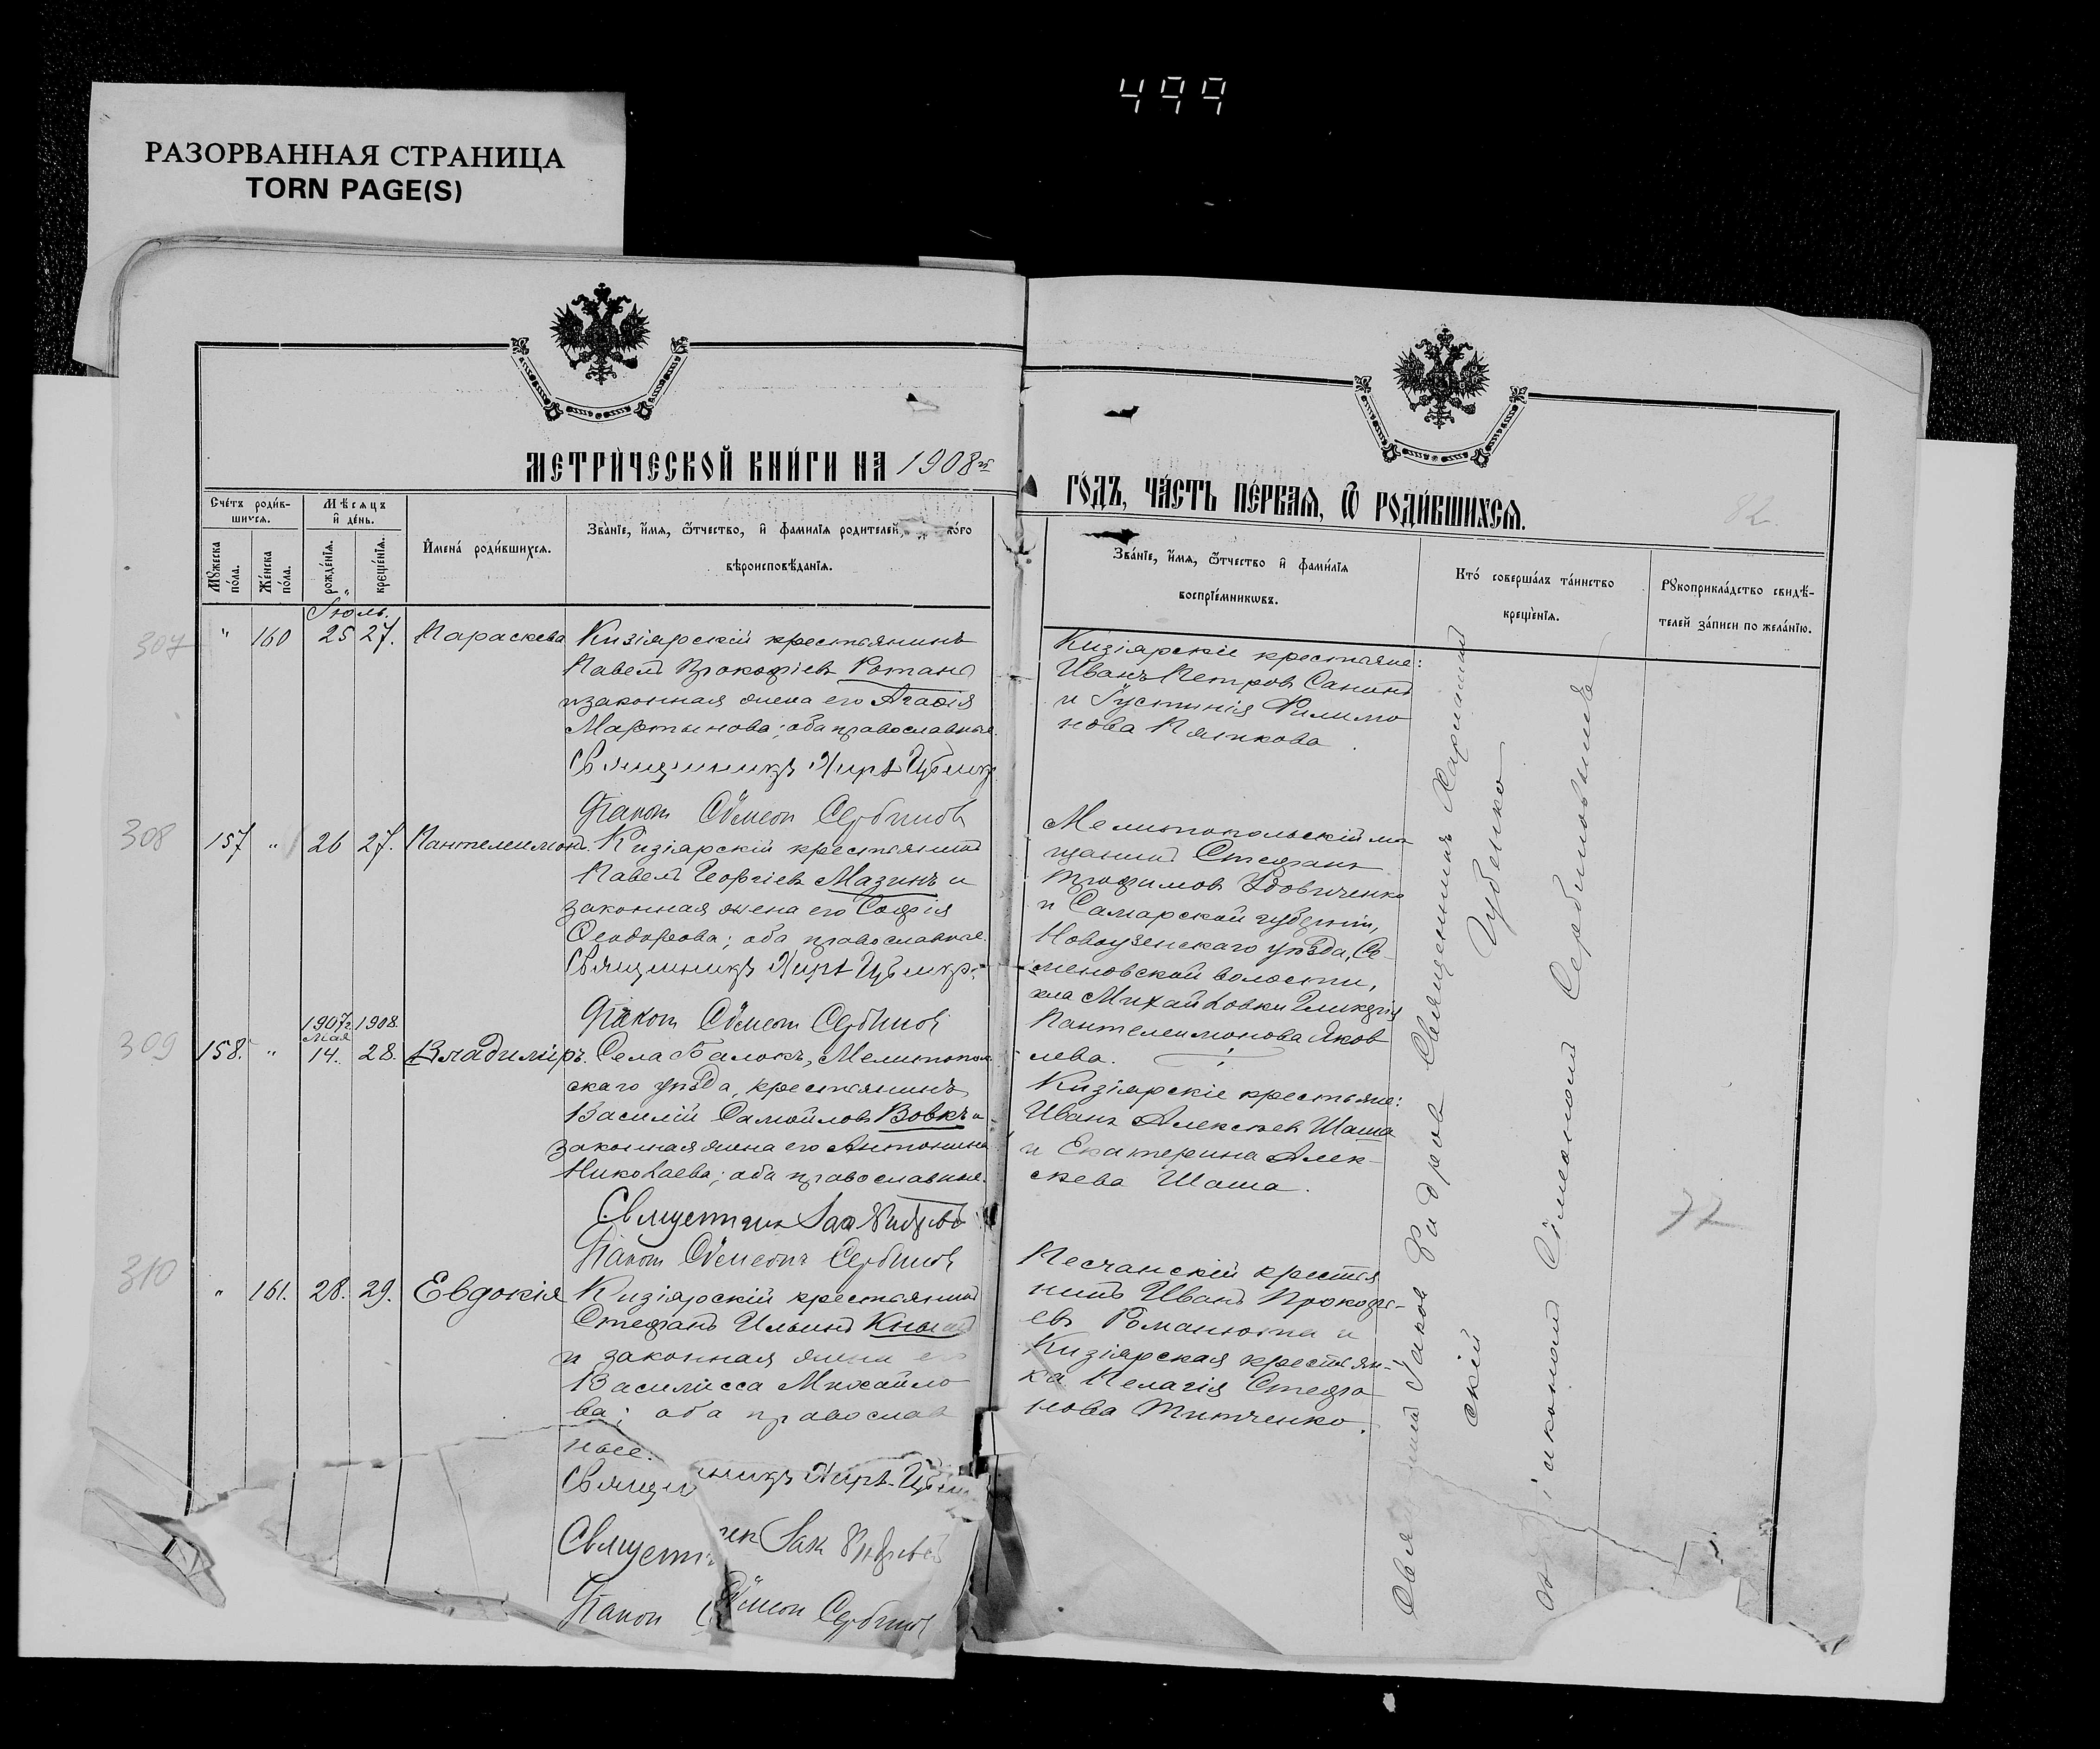 499
РАЗОРВАННАЯ СТРАНИЦА
TORN PAGE(S)
МЕТРИ́ЧЕСКОЙ КНИ́ГИ НА 1908й
ГО́ДЪ, ЧА́СТЬ ПЕ́РВАЯ, Ѿ РОДИ́ВШИХСЯ.
82.
Сче́тъ роди́в-
шихся.
Мѣсяцъ
и де́нь.
Мꙋжеска
по́ла.
Же́нска
по́ла.
рожде́нїя.
креще́нїя.
И҆мена́ роди́вшихся.
Зва́нїе, и҆́мя, ѻ҆́тчество, и҆ фами́лїя родителей, ко́го
вѣроисповѣ́данїя.
Зва́нїе, и҆́мя, ѻ҆́тчество и҆ фами́лїя
воспрїе́мникѡвъ.
Кто́ соверша́лъ та́инство
креще́нїя.
Рꙋкоприкла́дство свидѣ́-
телей за́писи по жела́нїю.
Іюль.
307
" 160 25 27. Параскева
Кизіярскій крестьянинъ
Павелъ Прокофіевъ
и законная жена его Агафія
Мартынова; оба православные.
Священникъ
Діаконъ Сѵмеонъ Сербиновъ
Кизіярскіе крестьяне:
Иванъ Петровъ Санинъ
и Іустинія Филимо
нова
308
157 " 26 27. Пантелеимонъ.
Кизіярскій крестьянинъ
Павелъ Георгіевъ Мазинъ и
законная жена его Софія
Ѳеодорова; оба православные.
Священникъ
Діаконъ Сѵмеонъ Сербиновъ
Мелитопольскій мѣ
щанинъ Стефанъ
Трофимовъ Удовиченко
и Самарской губерніи,
Новоузенскаго уѣзда, Се-
меновской волости,
села Михайловки Гликерія
Пантелеимонова Яков
лева.
309
1907г. 1908.
мая
158. " 14. 28. Владиміръ.
Села Балокъ, Мелитополь
скаго уѣзда, крестьянинъ
Василій Самойловъ Вовкъ и
законная жена его Антонина
Николаева; оба православные.
Священникъ
Діаконъ Сѵмеонъ Сербиновъ
Кизіярскіе крестьяне:
Иванъ Алексѣевъ Шаша
и Екатерина Алек-
сѣева Шаша.
310
" 161. 28. 29. Евдокія
Кизіярскій крестьянинъ
Стефанъ Ильинъ
и законная жена его
Василисса Михайло
ва; оба православ
ные.
Священникъ
Священникъ
Діаконъ Сѵмеонъ Сербиновъ
Песчанскій крестья
нинъ Иванъ Прокофі-
евъ Романюта и
Кизіярская крестьян-
ка Пелагія Стефа
нова Титченко.
Священникъ Харитонъ
Губенко
скій
Сѵмеономъ Сербиновымъ
77